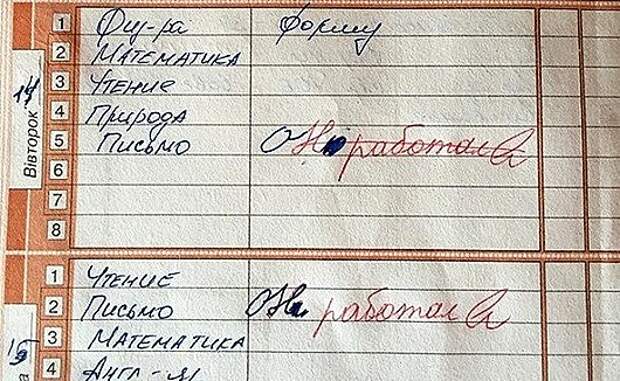 14
Вівторок
1 Физ-ра Форму
2 Математика
3 Чтение
4 Природа
5 Письмо Она работала
6
7
8
15
1 Чтение
2 Письмо Она работала
3 Математика
4 Англ-я